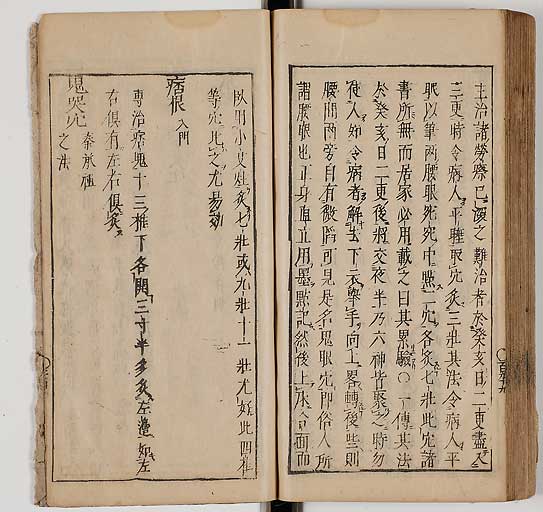 主治諸勞瘵已深之難治者於癸亥日二更盡入
三更時令病人平睡取穴灸三壯其法令病人平
眠以筆兩腰眼宛宛中點二穴各灸七壯此穴諸
書所無而居家必用載之曰其累驗○一傳其法
於癸亥日二更後將交夜半乃六神皆聚之時勿
使人知令病者解去下衣舉手向上畧轉後些則
腰間兩旁自有微陷可見是名鬼眼穴即俗人所
謂腰眼也正身直立用墨點記然後上床合面而
臥用小艾炷灸七壯或九壯十一壯尤好此四椎
等穴比之尤易効
痞根 入門
專治痞塊十三椎下各開三寸半多灸左邊如左
右俱有左右俱灸
鬼哭穴
秦承祖
之法